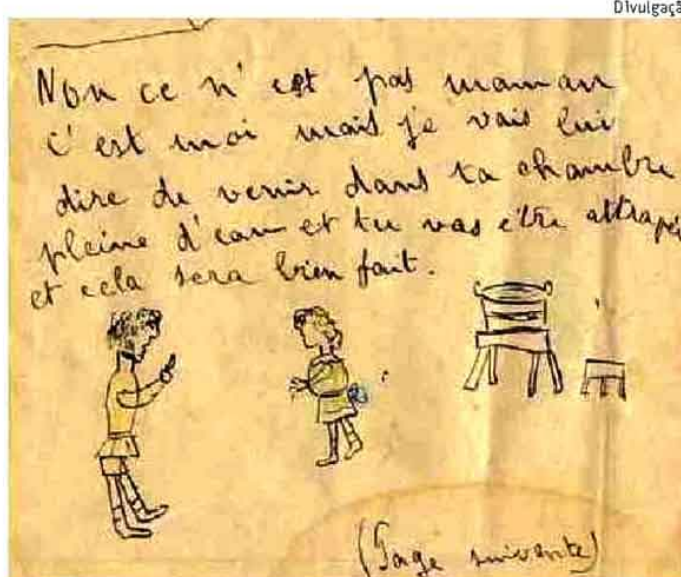 Divulgaçã
Non ce n'est pas maman
c'est moi mais je vais lui
dire de venir dans ta chambre
pleine d'eau et tu vas être attrapé
et cela sera bien fait.
(Page suivante)